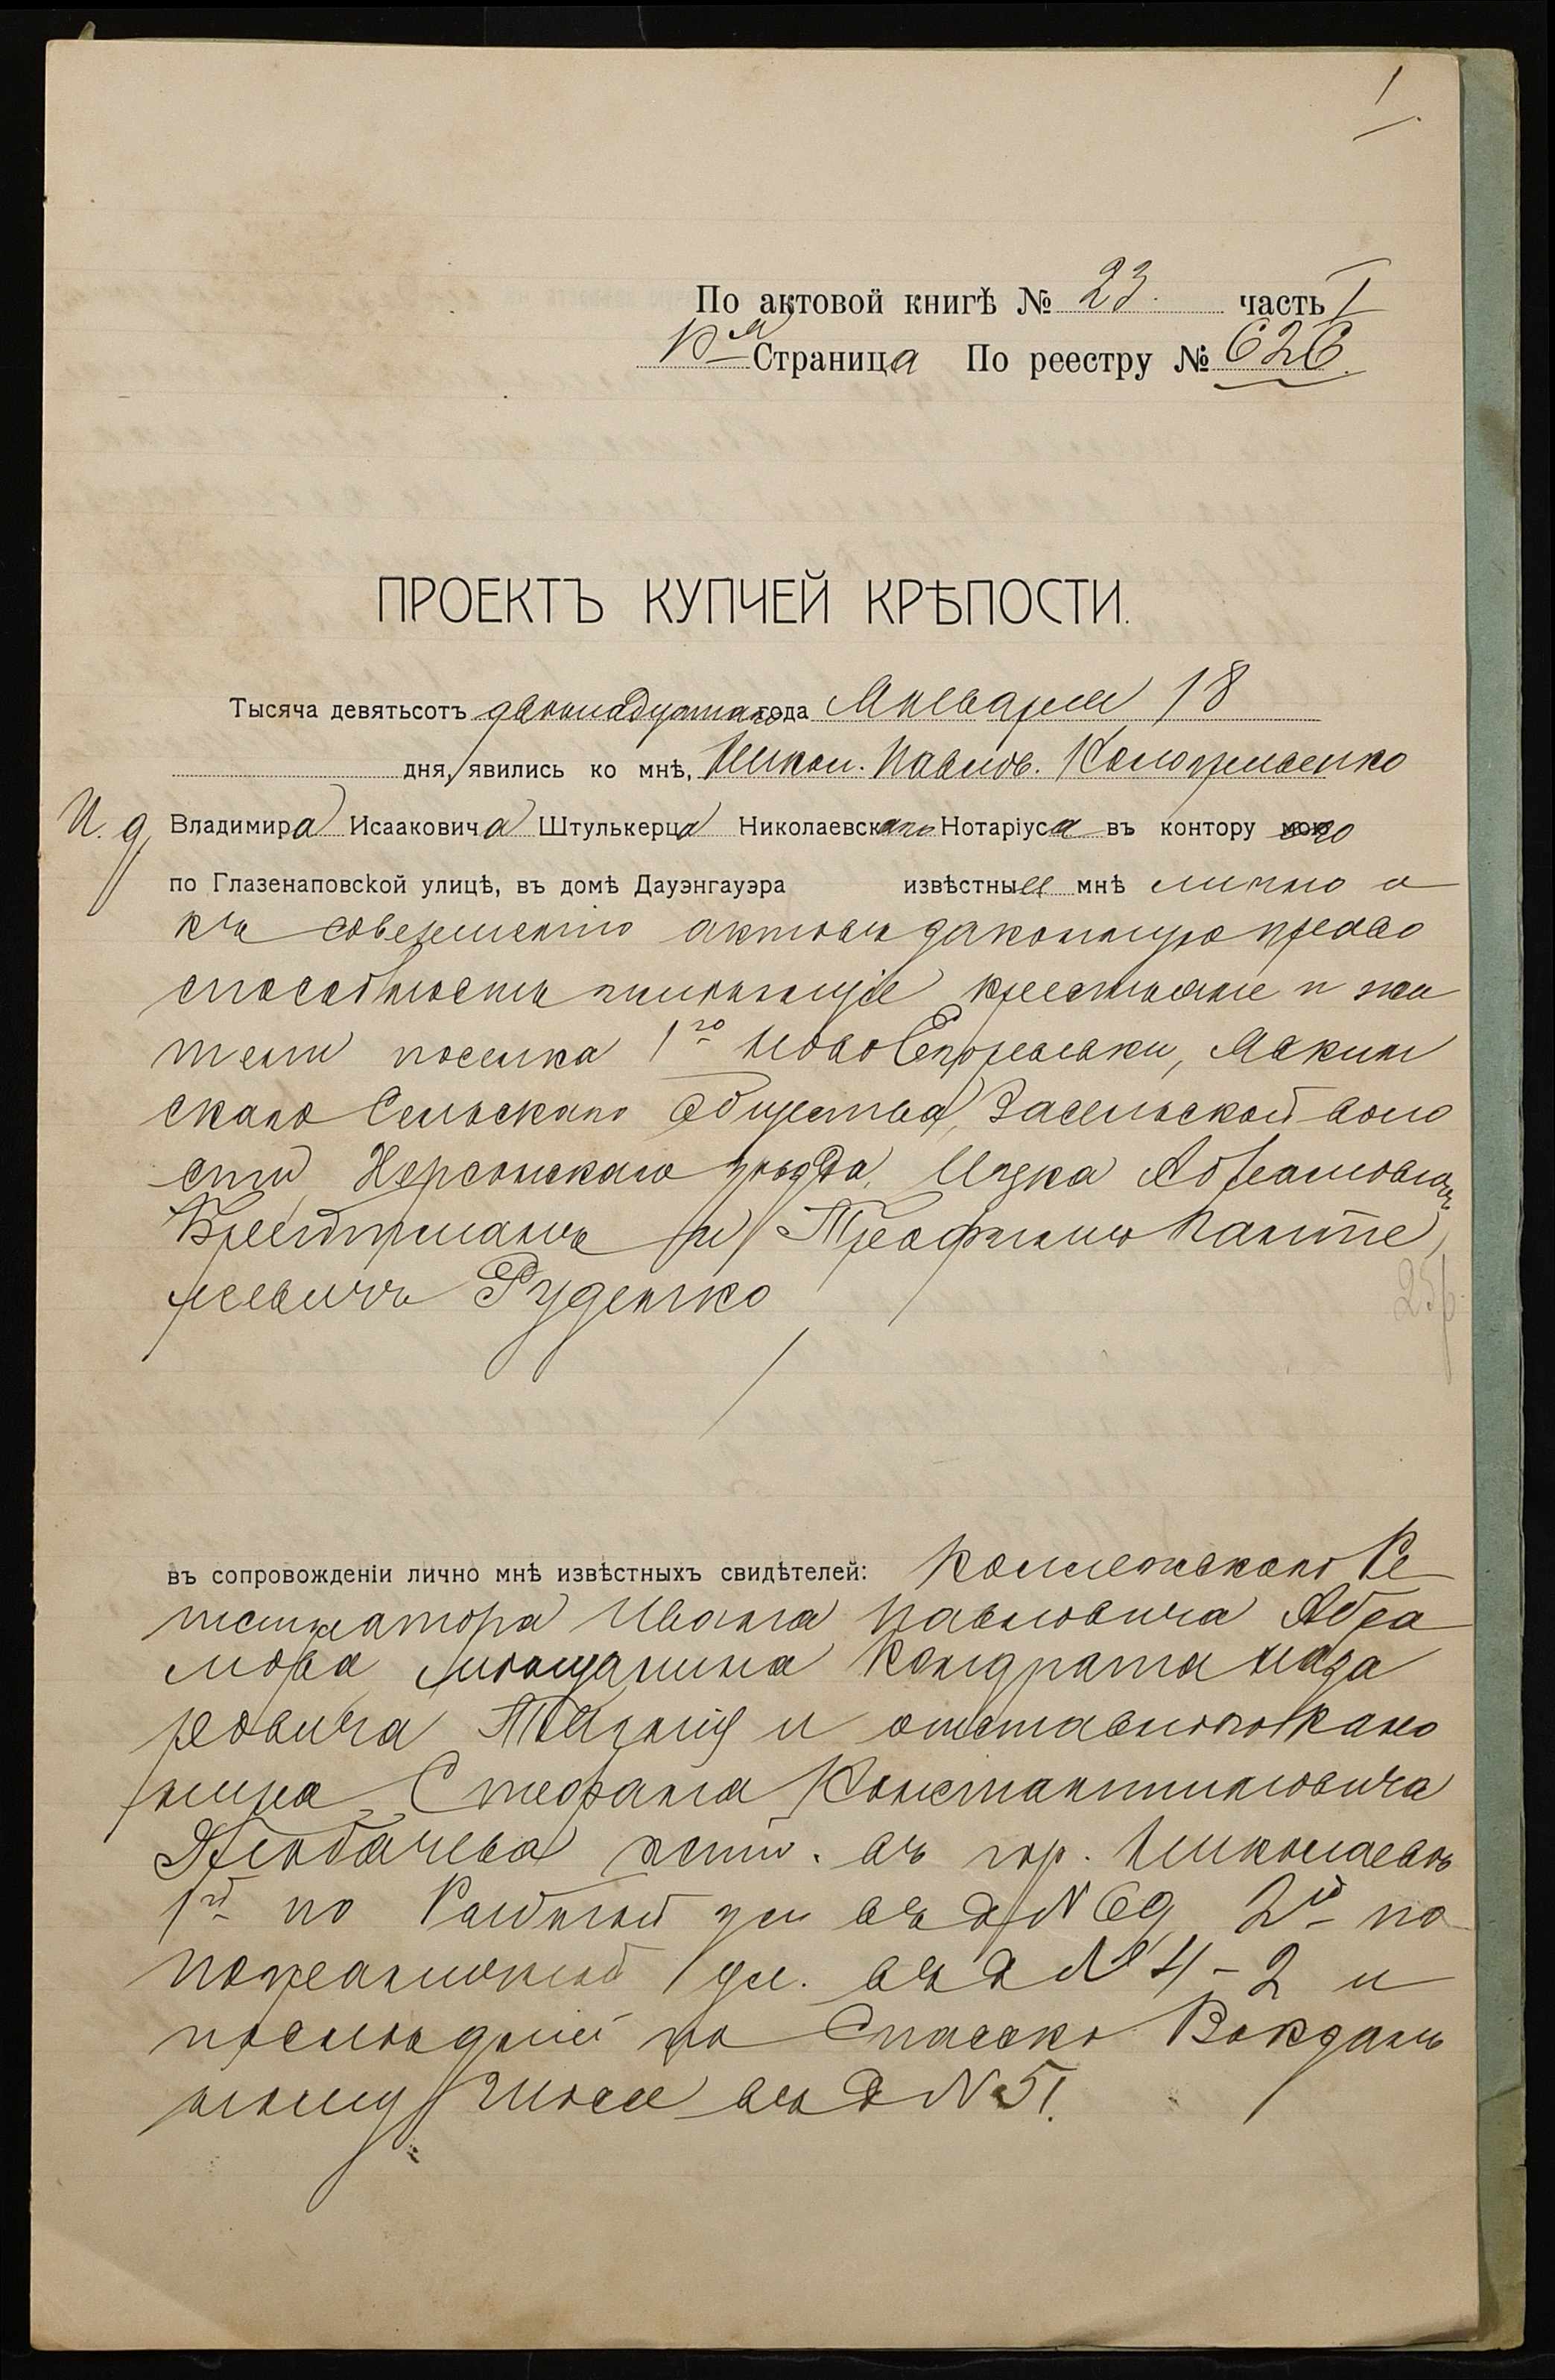 1
По актовой книгѣ № 23. часть I
Страница По реестру № 626.
ПРОЕКТЪ КУПЧЕЙ КРѢПОСТИ.
Тысяча девятьсотъ двѣнадцатаго года Января 18
дня, явились ко мнѣ, Никол. Павлов.
И. д. Владимира Исааковича Штулькерца Николаевскаго Нотаріуса въ контору его
по Глазенаповской улицѣ, въ домѣ Дауэнгауэра извѣстные мнѣ лично и
къ совершенію актовъ законную право
способность имѣющіе крестьяне и жи
тели поселка 1го Ново
скаго Сельскаго Общества, Засельской воло
сти, Херсонскаго уѣзда, Ицка Абрамовичъ
и Трофимъ Панте
леевичъ Руденко
въ сопровожденіи лично мнѣ извѣстныхъ свидѣтелей: Коллежскаго Ре
гистратора Ивана Павловича Абра
мова мѣщанина Кондрата Наза
ровича и отставного Кано
нира Стефана Константиновича
жит. въ гор. Николаевѣ
1й по Рыбной ул въ д № 69 2й по
ул. въ д № 4-2 и
послѣдній по Спасско Вокзаль
ному Шоссе въ д № 51.